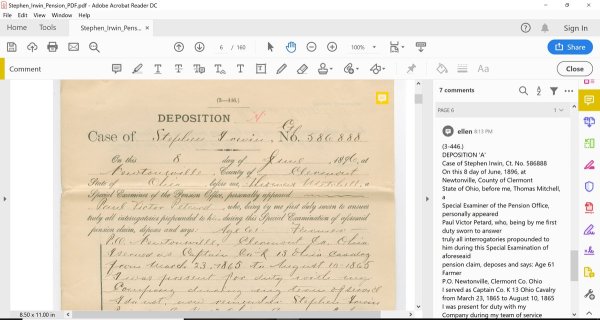 Stephen_Irwin_Pension_PDF.pdf - Adobe Acrobat Reader DC
File Edit View Window Help
Home Tools Stephen_Irwin_Pens... × Sign In
6 / 160 100% Share
Comment Aa Close
(3—446.)
DEPOSITION A
Case of Stephen Irwin, Ct. No. 586888
On this 8 day of June, 1896, at
Newtonville, County of Clermont
State of Ohio, before me, Thomas Mitchell, a
Special Examiner of the Pension Office, personally appeared
Paul Victor Petard, who, being by me first duly sworn to answer
truly all interrogatories propounded to him during this Special Examination of aforesaid
pension claim, deposes and says: Age 61 Farmer
P.O. Newtonville, Clermont Co. Ohio
I served as Captain Co. K 13 Ohio Cavalry
from March 23, 1865 to August 10, 1865
I was present for duty with my
Company during my term of service
I do not, now remember Stephen Irwin
8.50 x 11.00 in
7 comments
PAGE 6 1
ellen 8:13 PM
(3-446.)
DEPOSITION 'A'
Case of Stephen Irwin, Ct. No. 586888
On this 8 day of June, 1896, at
Newtonville, County of Clermont
State of Ohio, before me, Thomas Mitchell,
a
Special Examiner of the Pension Office,
personally appeared
Paul Victor Petard, who, being by me first
duly sworn to answer
truly all interrogatories propounded to
him during this Special Examination of
aforeseaid
pension claim, deposes and says: Age 61
Farmer
P.O. Newtonville, Clermont Co. Ohio
I served as Captain Co. K 13 Ohio Cavalry
from March 23, 1865 to August 10, 1865
I was present for duty with my
Company during my team of service